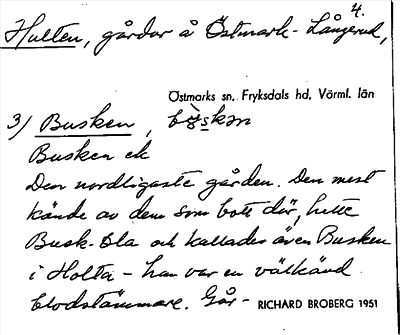 4.
Hulten, gårdar å Östmark-Långerud,
Östmarks sn. Fryksdals hd, Värml. län
3) Busken,
Busken ek
Den nordligaste gården. Den mest
kände av dem som bott där, hette
Busk-Ola och kallades även Busken
i Holta - han var en välkänd
blodstämmare. Går-
RICHARD BROBERG 1951